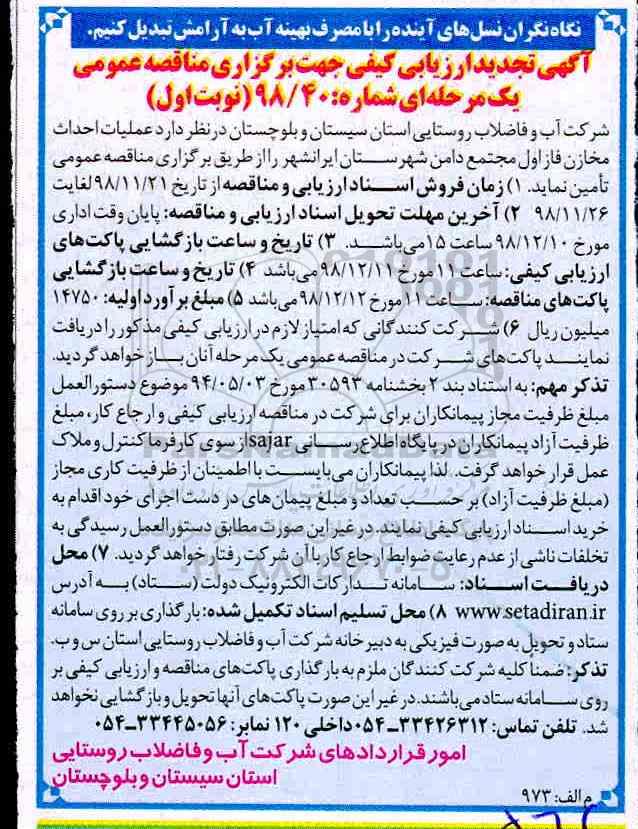 نگاه نگران نسل‌های آینده را با مصرف بهینه آب به آرامش تبدیل کنیم.
آگهی تجدید ارزیابی کیفی جهت برگزاری مناقصه عمومی
یک مرحله‌ای شماره: ۹۸/۴۰ (نوبت اول)
شرکت آب و فاضلاب روستایی استان سیستان و بلوچستان در نظر دارد عملیات احداث
مخازن فاز اول مجتمع دامن شهرستان ایرانشهر را از طریق برگزاری مناقصه عمومی
تأمین نماید. ۱) زمان فروش اسناد ارزیابی و مناقصه از تاریخ ۹۸/۱۱/۲۱ لغایت
۹۸/۱۱/۲۶ ۲) آخرین مهلت تحویل اسناد ارزیابی و مناقصه: پایان وقت اداری
مورخ ۹۸/۱۲/۱۰ ساعت ۱۵ می‌باشد. ۳) تاریخ و ساعت بازگشایی پاکت‌های
ارزیابی کیفی: ساعت ۱۱ مورخ ۹۸/۱۲/۱۱ می‌باشد ۴) تاریخ و ساعت بازگشایی
پاکت‌های مناقصه: ساعت ۱۱ مورخ ۹۸/۱۲/۱۲ می‌باشد ۵) مبلغ برآورد اولیه: ۱۴۷۵۰
میلیون ریال ۶) شرکت کنندگانی که امتیاز لازم در ارزیابی کیفی مذکور را دریافت
نمایند پاکت‌های شرکت در مناقصه عمومی یک مرحله آنان باز خواهد گردید.
تذکر مهم: به استناد بند ۲ بخشنامه ۳۰۵۹۳ مورخ ۹۴/۰۵/۰۳ موضوع دستورالعمل
مبلغ ظرفیت مجاز پیمانکاران برای شرکت در مناقصه ارزیابی کیفی و ارجاع کار، مبلغ
ظرفیت آزاد پیمانکاران در پایگاه اطلاع رسانی sajar از سوی کارفرما کنترل و ملاک
عمل قرار خواهد گرفت. لذا پیمانکاران می‌بایست با اطمینان از ظرفیت کاری مجاز
(مبلغ ظرفیت آزاد) بر حسب تعداد و مبلغ پیمان‌های در دست اجرای خود اقدام به
خرید اسناد ارزیابی کیفی نمایند. در غیر این صورت مطابق دستورالعمل رسیدگی به
تخلفات ناشی از عدم رعایت ضوابط ارجاع کار با آن شرکت رفتار خواهد گردید. ۷) محل
دریافت اسناد: سامانه تدارکات الکترونیک دولت (ستاد) به آدرس
www.setadiran.ir ۸) محل تسلیم اسناد تکمیل شده: بارگذاری بر روی سامانه
ستاد و تحویل به صورت فیزیکی به دبیرخانه شرکت آب و فاضلاب روستایی استان س و ب.
تذکر: ضمنا کلیه شرکت کنندگان ملزم به بارگذاری پاکت‌های مناقصه و ارزیابی کیفی بر
روی سامانه ستاد می‌باشند. در غیر این صورت پاکت‌های آنها تحویل و بازگشایی نخواهد
شد. تلفن تماس: ۳۳۴۲۶۳۱۲-۰۵۴ داخلی ۱۲۰ نمابر: ۳۳۴۴۵۰۵۶-۰۵۴
امور قراردادهای شرکت آب و فاضلاب روستایی
استان سیستان و بلوچستان
م الف: ۹۷۳